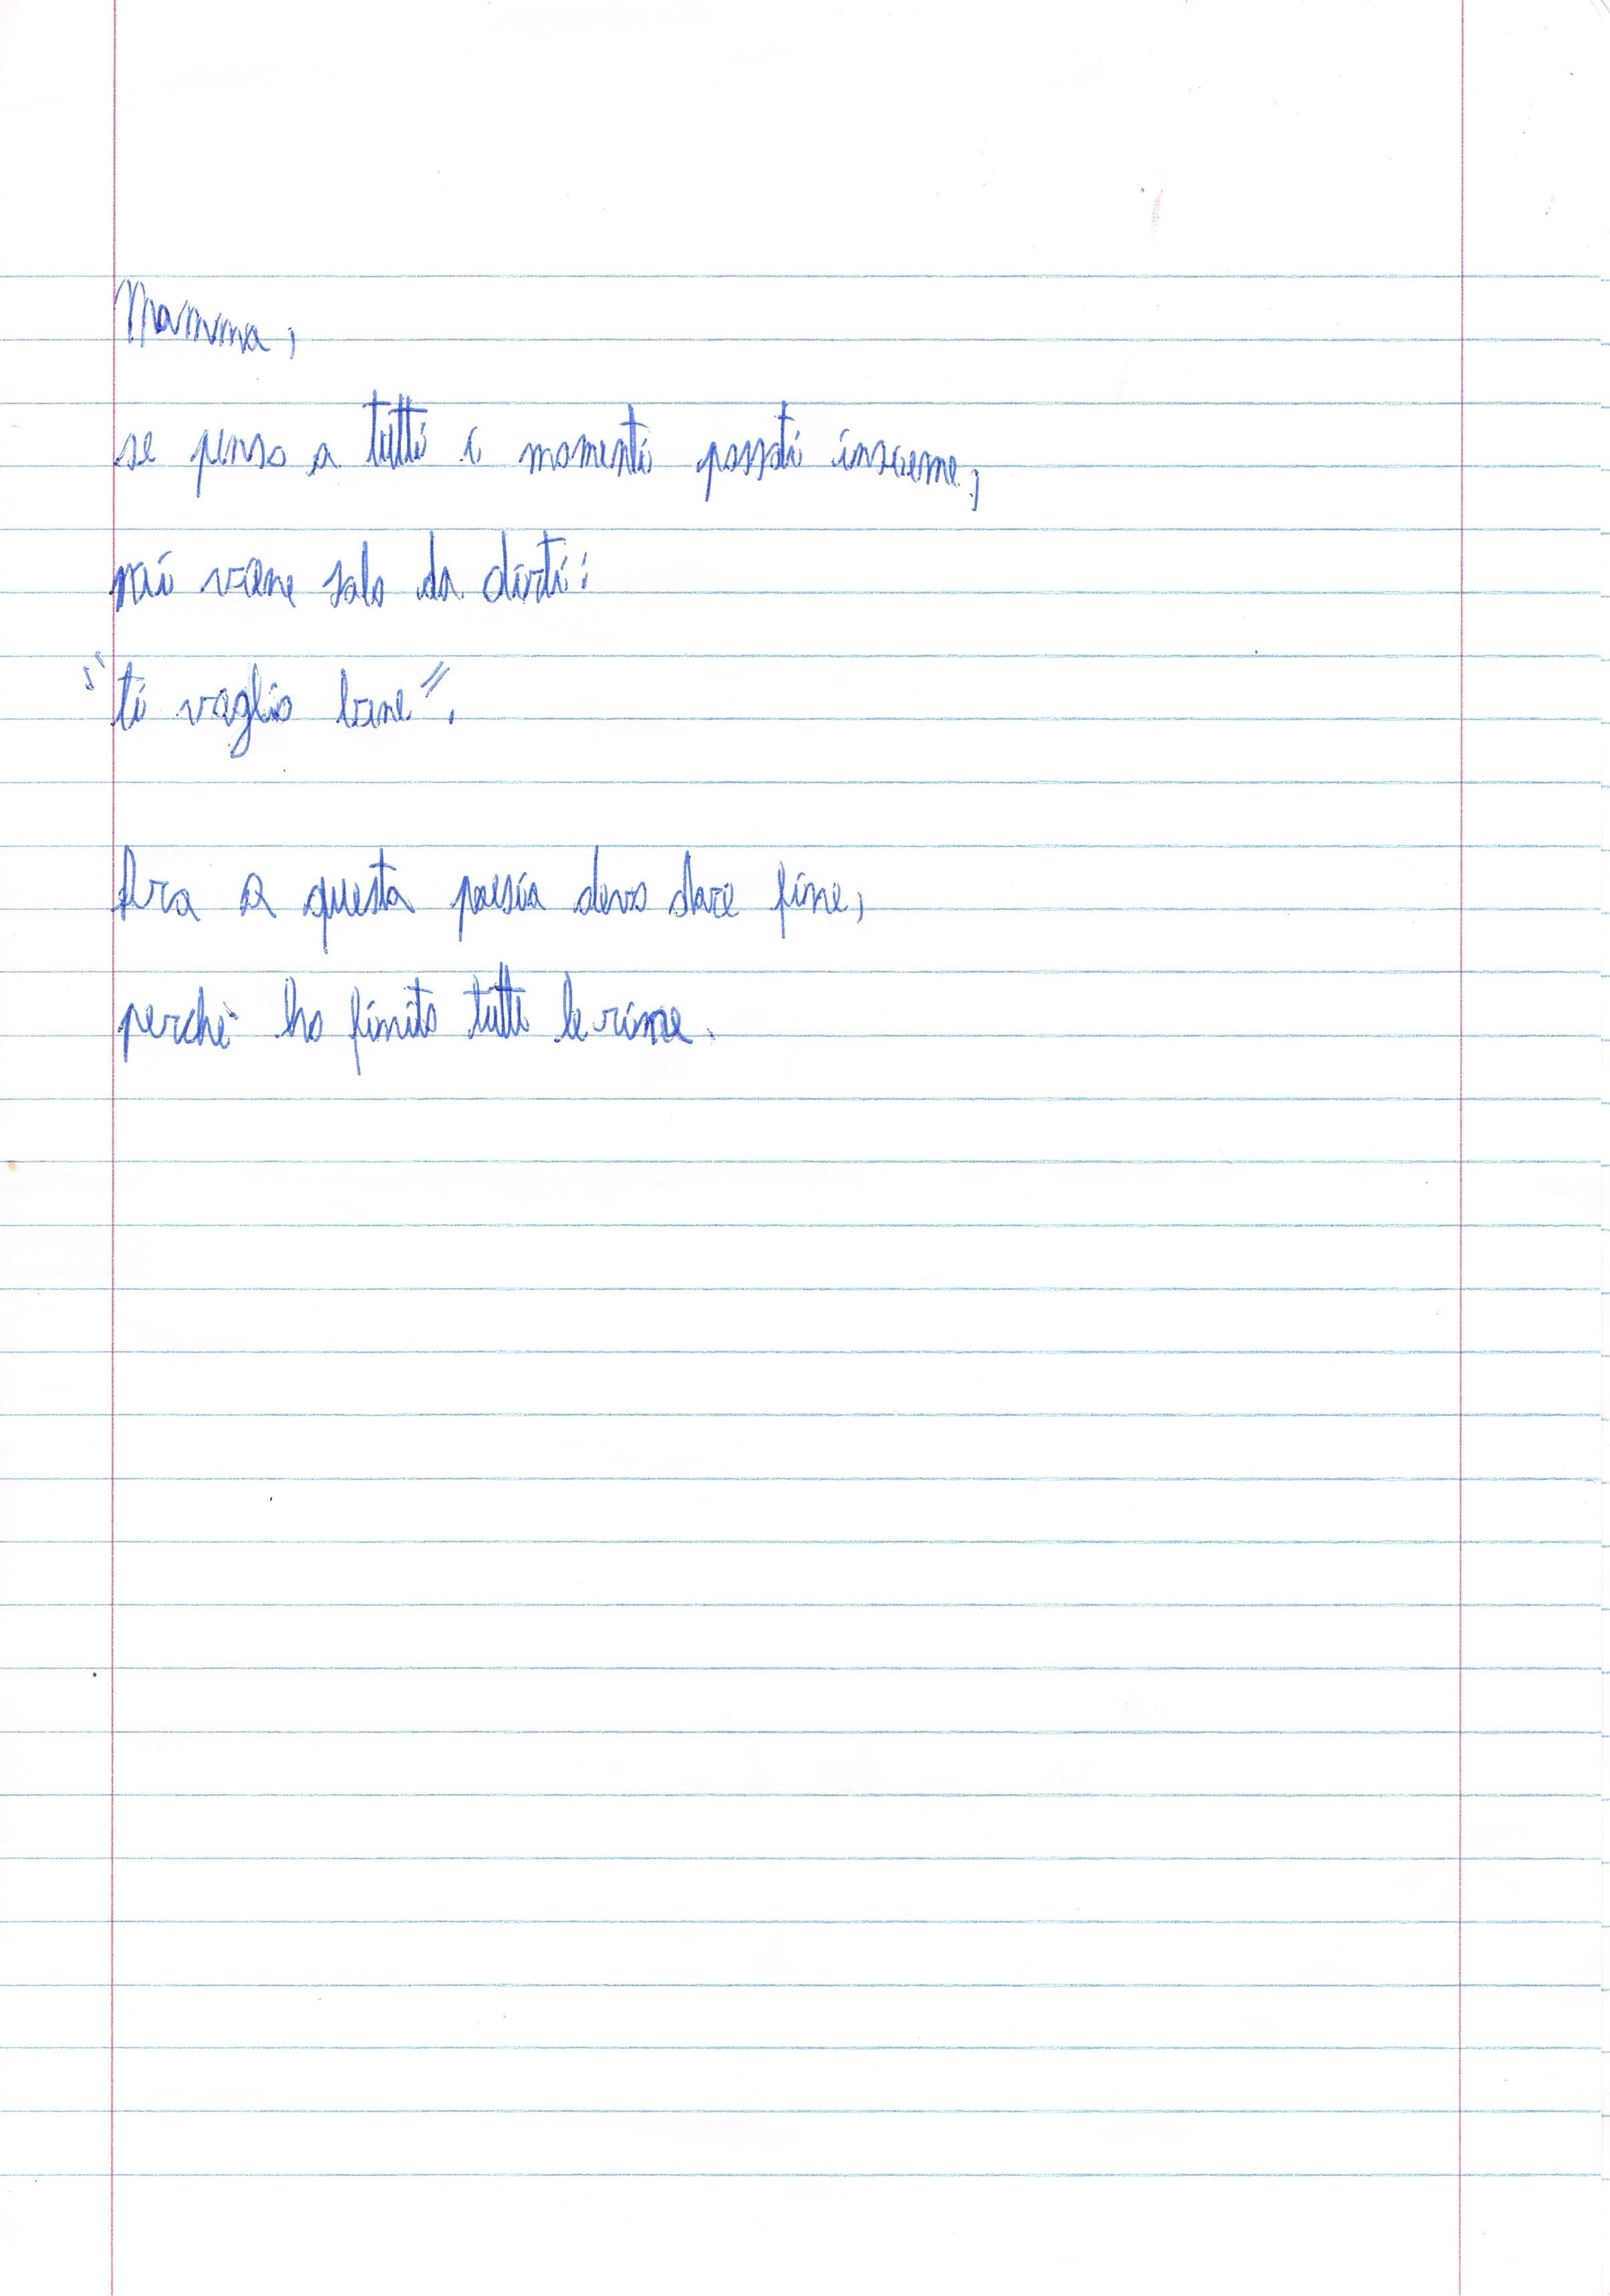 Mamma,
se penso a tutti i momenti passati insieme,
mi viene solo da dirti:
"ti voglio bene".
Ora a questa poesia devo dare fine,
perchè ho finito tutte le rime.